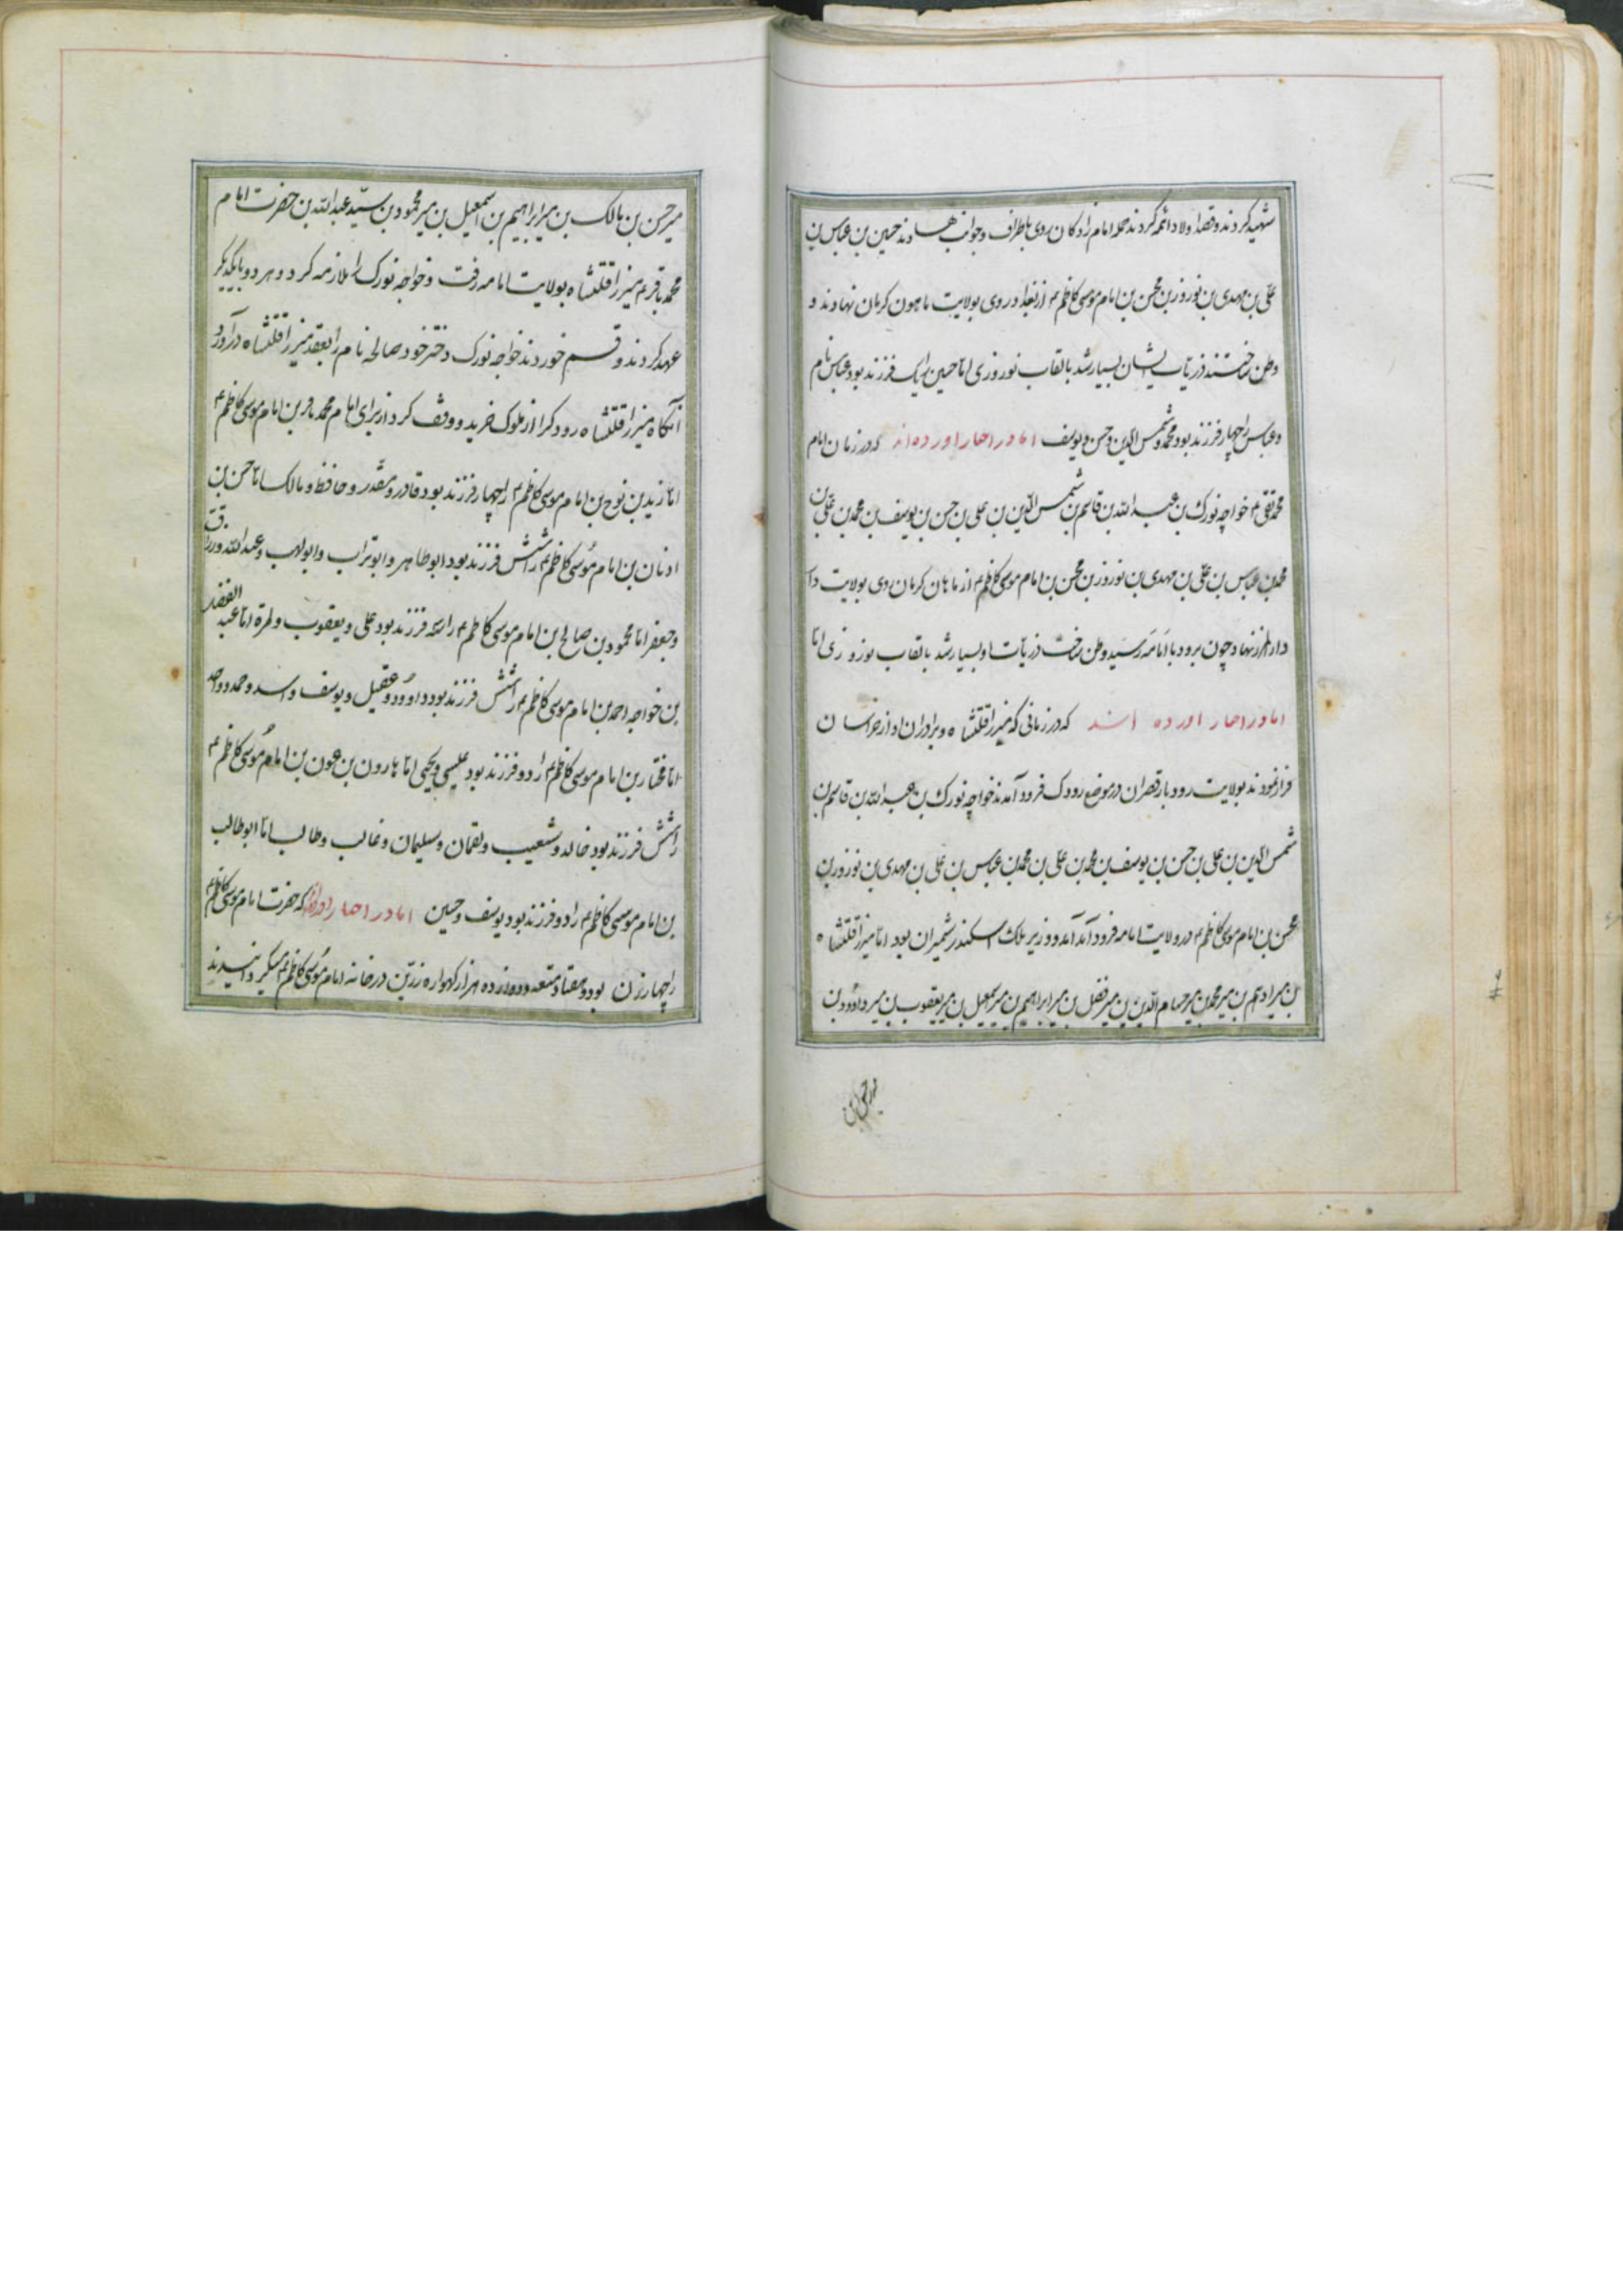 شهید کردند و قصد اولاد ائمه کردند جمله امام زادکان روی باطراف و جوانب نهادند حسین بن عباس بن
علی بن مهدی بن نوروز بن محسن بن امام موسی کاظم م از بغداد روی بولایت ماهون کرمان نهادند و
وطن ساختند ذریات ایشان بسیار شد بالقاب نوروزی اما حسین را یک فرزند بود عباس نام
و عباس را چهار فرزند بود محمد و شمس الدین و حسن و یوسف اما در اخبار آورده‌اند که در زمان امام
محمد تقی م خواجه نورک بن عبدالله بن قاسم بن شمس الدین بن علی بن حسن بن یوسف بن محمد بن علی بن
محمد بن عباس بن علی بن مهدی بن نوروز بن محسن بن امام موسی کاظم م از ماهان کرمان روی بولایت دا
دارالمرز نهاد چون برودبار امامه رسید وطن ساخت ذریات او بسیار شد بالقاب نوروزی اما
اما در اخبار آورده اند که در زمانی که میرزا قتلشاه و برادران او از خراسان
فرار نمودند بولایت رودبار قصران در موضع رودک فرود آمدند خواجه نورک بن عبدالله بن قاسم بن
شمس الدین بن علی بن حسن بن یوسف بن محمد بن علی بن محمد بن عباس بن علی بن مهدی بن نوروز بن
محسن بن امام موسی کاظم م در ولایت امامه فرود آمد آمد و وزیر ملک اسکندر شمیران بود اما میرزا قتلشاه
بن میر ادهم بن میر محمد بن میر حسام الدین بن میر فضل بن میر ابراهیم بن میر اسمعیل بن میر یعقوب بن میر داوود بن
میر حسن بن
میر حسن بن مالک بن میر ابراهیم بن اسمعیل بن میر محمود بن سید عبدالله بن حضرت امام
محمد باقر م میرزا قتلشاه بولایت امامه رفت و خواجه نورک را ملازمه کرد و هر دو بایکدیکر
عهد کردند و قسم خوردند خواجه نورک دختر خود صالحه نام را بعقد میرزا قتلشاه درآورد
آنکاه میرزا قتلشاه رودک را از ملوک خرید و وقف کرد از برای امام محمد باقر بن امام موسی کاظم م
اما زید بن نوح بن امام موسی کاظم م را چهار فرزند بود قادر و مقدر و حافظ و مالک اما حسن بن
ادنان بن امام موسی کاظم م را شش فرزند بود ابوطاهر و ابوتراب و ابولهب و عبدالله و رزاق
و جعفر اما محمود بن صالح بن امام موسی کاظم م را سه فرزند بود علی و یعقوب و لمرة اما عبد الغفار
بن خواجه احمد بن امام موسی کاظم م را شش فرزند بود داوود و عقیل و یوسف و اسد و حمد و واحد
اما مختار بن امام موسی کاظم م را دو فرزند بود عیسی و یحیی اما هارون بن عون بن امام موسی کاظم م
را شش فرزند بود خالد و شعیب و لقمان و سلیمان و غالب و طالب اما ابوطالب
بن امام موسی کاظم م را دو فرزند بود یوسف و حسین اما در اخبار آورده‌اند که حضرت امام موسی کاظم م
را چهار زن بود و هفتاد متعه و دوازده هزار کهواره زرین در خانه امام موسی کاظم م میکردانیدند